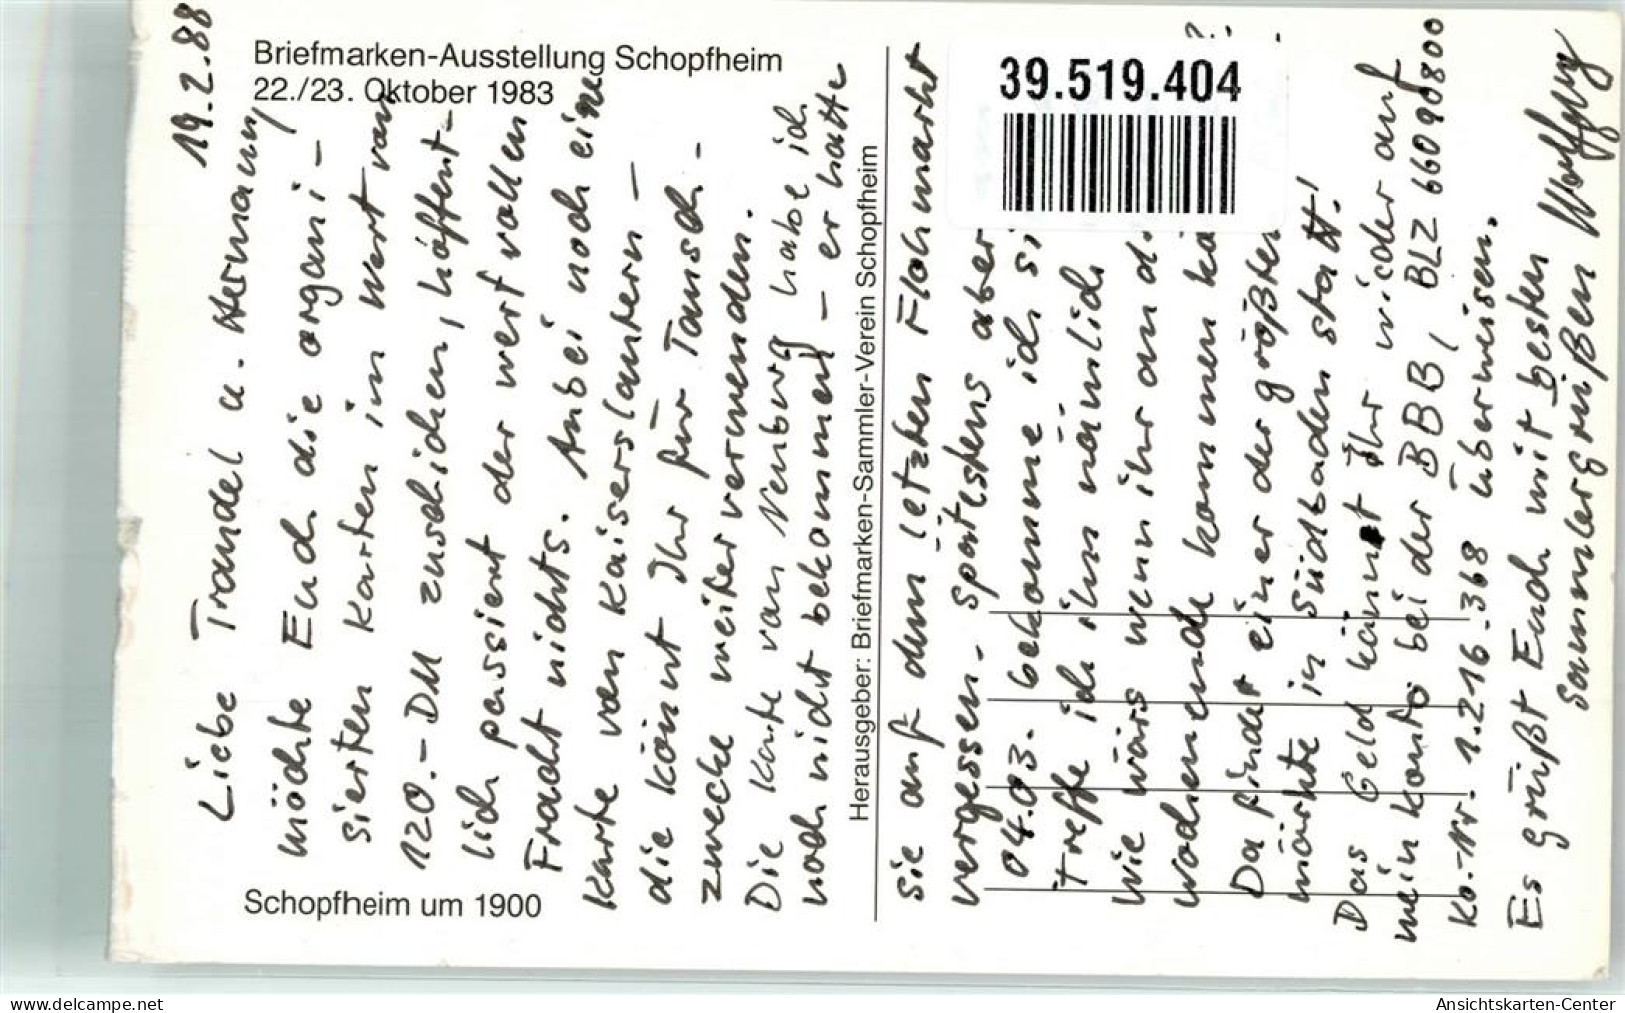 Briefmarken-Ausstellung Schopfheim
22./23. Oktober 1983
19.2.88
Liebe Traudel u. Hermann,
möchte Euch die organi-
sierten Karten im Wert von
120.- DM zuschicken, hoffent-
lich passiert der wertvollen
Fracht nichts. Anbei noch eine
Karte von Kaiserslautern -
die könnt Ihr für Tausch-
zwecke weiterverwenden.
Die Karte von habe ich
noch nicht bekommen - er hatte
Schopfheim um 1900
Herausgeber: Briefmarken-Sammler-Verein Schopfheim
sie auf dem letzten Flohmarkt
vergessen - spätestens aber
04.03. bekomme ich si
treffe ich ihn nämlich
Wie wärs wenn ihr an d.
Wochenende kommen kö ?
Da findet einer der größten
märkte in Südbaden statt!
Das Geld könnt Ihr wieder auf
mein Konto bei der BBB, BLZ 66090800
Ko.-Nr. 1.216.368 überweisen.
Es grüßt Euch mit besten
Sammlergrüßen Wolfgang
39.519.404
www.delcampe.net
Ansichtskarten-Center